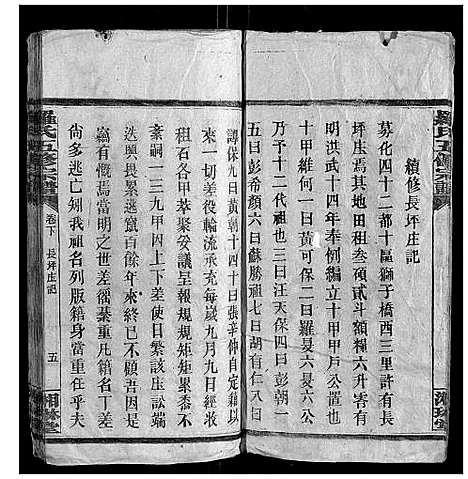 續修長坪庄記
慕化四十二都十區獅子橋西三里許有長
坪庄焉其地田租叁頟貳斗額糧六升零有
明洪武十四年奉例編立十甲甲戶公置也
十甲維何一曰黃可保二曰羅旻六旻六公
乃予十二代祖也三曰汪天保四曰彭朝一
五曰彭希顏六曰蘇勝祖七曰胡有仁八曰
譚保九曰黃朝十四十曰張辛仲自定籍以
來一切差役輪流承充每歲九月九日經收
租石各甲萃聚妥議呈報規規矩矩累黍不
紊嗣一三九甲因上下差使日繁該庄訟端
迭興畏累逃竄百餘年來終已不顧吾因是
竊有慨焉當明之世差徭綦重凡籍名丁差
尙多逃亡匆知我祖名列版籍身當重任乎夫
羅氏五修宗譜
卷下
長坪庄記
五
湘琳堂
羅氏五修宗譜
湘琳堂